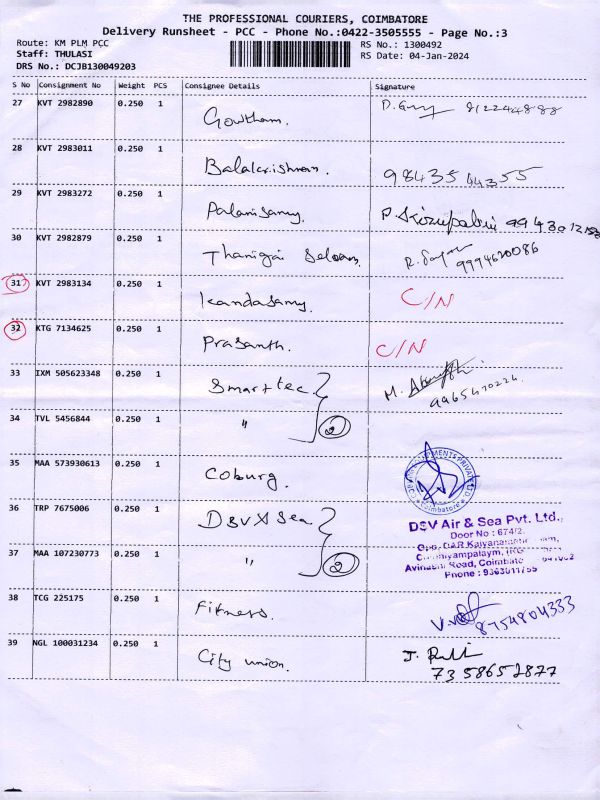 THE PROFESSIONAL COURIERS, COIMBATORE
Delivery Runsheet - PCC - Phone No.:0422-3505555 - Page No.:3
Route: KM PLM PCC
RS No.: 1300492
Staff: THULASI
RS Date: 04-Jan-2024
DRS No.: DCJB130049203
S No Consignment No Weight PCS Consignee Details Signature
27 KVT 2982890 0.250 1 Gowtham. 8122244888
28 KVT 2983011 0.250 1 Balakrishnan. 9843544355
29 KVT 2983272 0.250 1 Palanisamy.
30 KVT 2982879 0.250 1 Thanigai Selvam. 9994620086
31 KVT 2983134 0.250 1 Kandasamy. C/N
32 KTG 7134625 0.250 1 Prasanth. C/N
33 IXM 505623348 0.250 1 Smart tec M. 9965470224
34 TVL 5456844 0.250 1 " 2
35 MAA 573930613 0.250 1 Coburg.
Coimbatore
36 TRP 7675006 0.250 1 DSV A Sea
DSV Air & Sea Pvt. Ltd.,
Door No : 674/2,
37 MAA 107230773 0.250 1 " 2
Avinashi Road, Coimbatore
Phone : 9363011755
38 TCG 225175 0.250 1 Fitness. 8754804333
39 NGL 100031234 0.250 1 City union. J.
7358652877